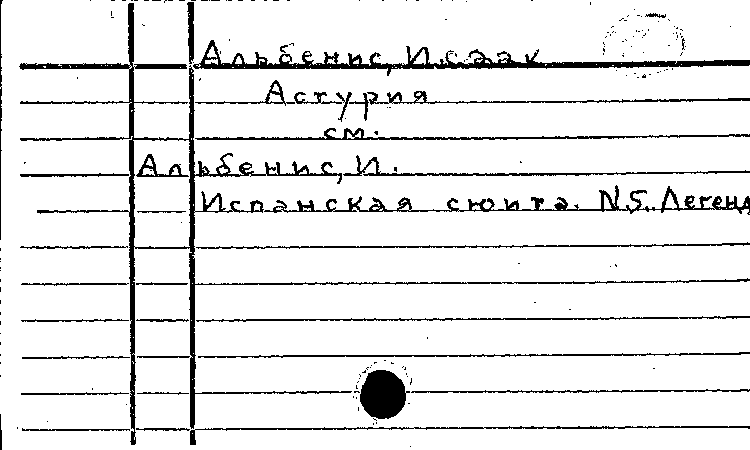 Альбенис, Исаак
Астурия
см.
Альбенис, И.
Испанская сюита. N.5. Легенд